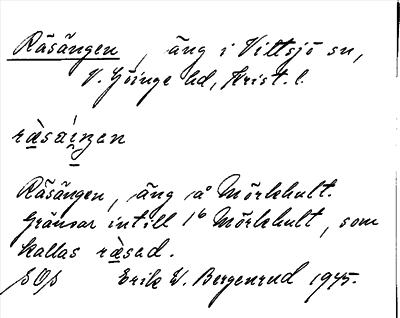 Räsängen, äng i Vittsjö sn,
V. Göinge hd, Krist. l.
ræsæiŋen
Räsängen, äng å Mörkhult.
Gränsar intill 1⁶ Mörkhult, som
kallas ræsed.
SOS Erik W. Bergenrud 1945.